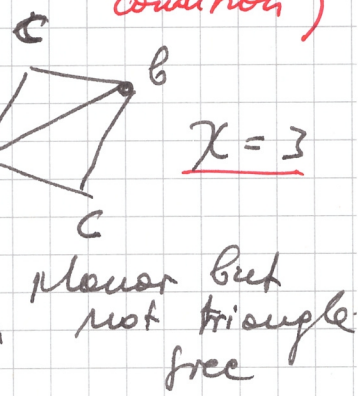 condition)
C
b
χ = 3
C
planar but
not triangle
free